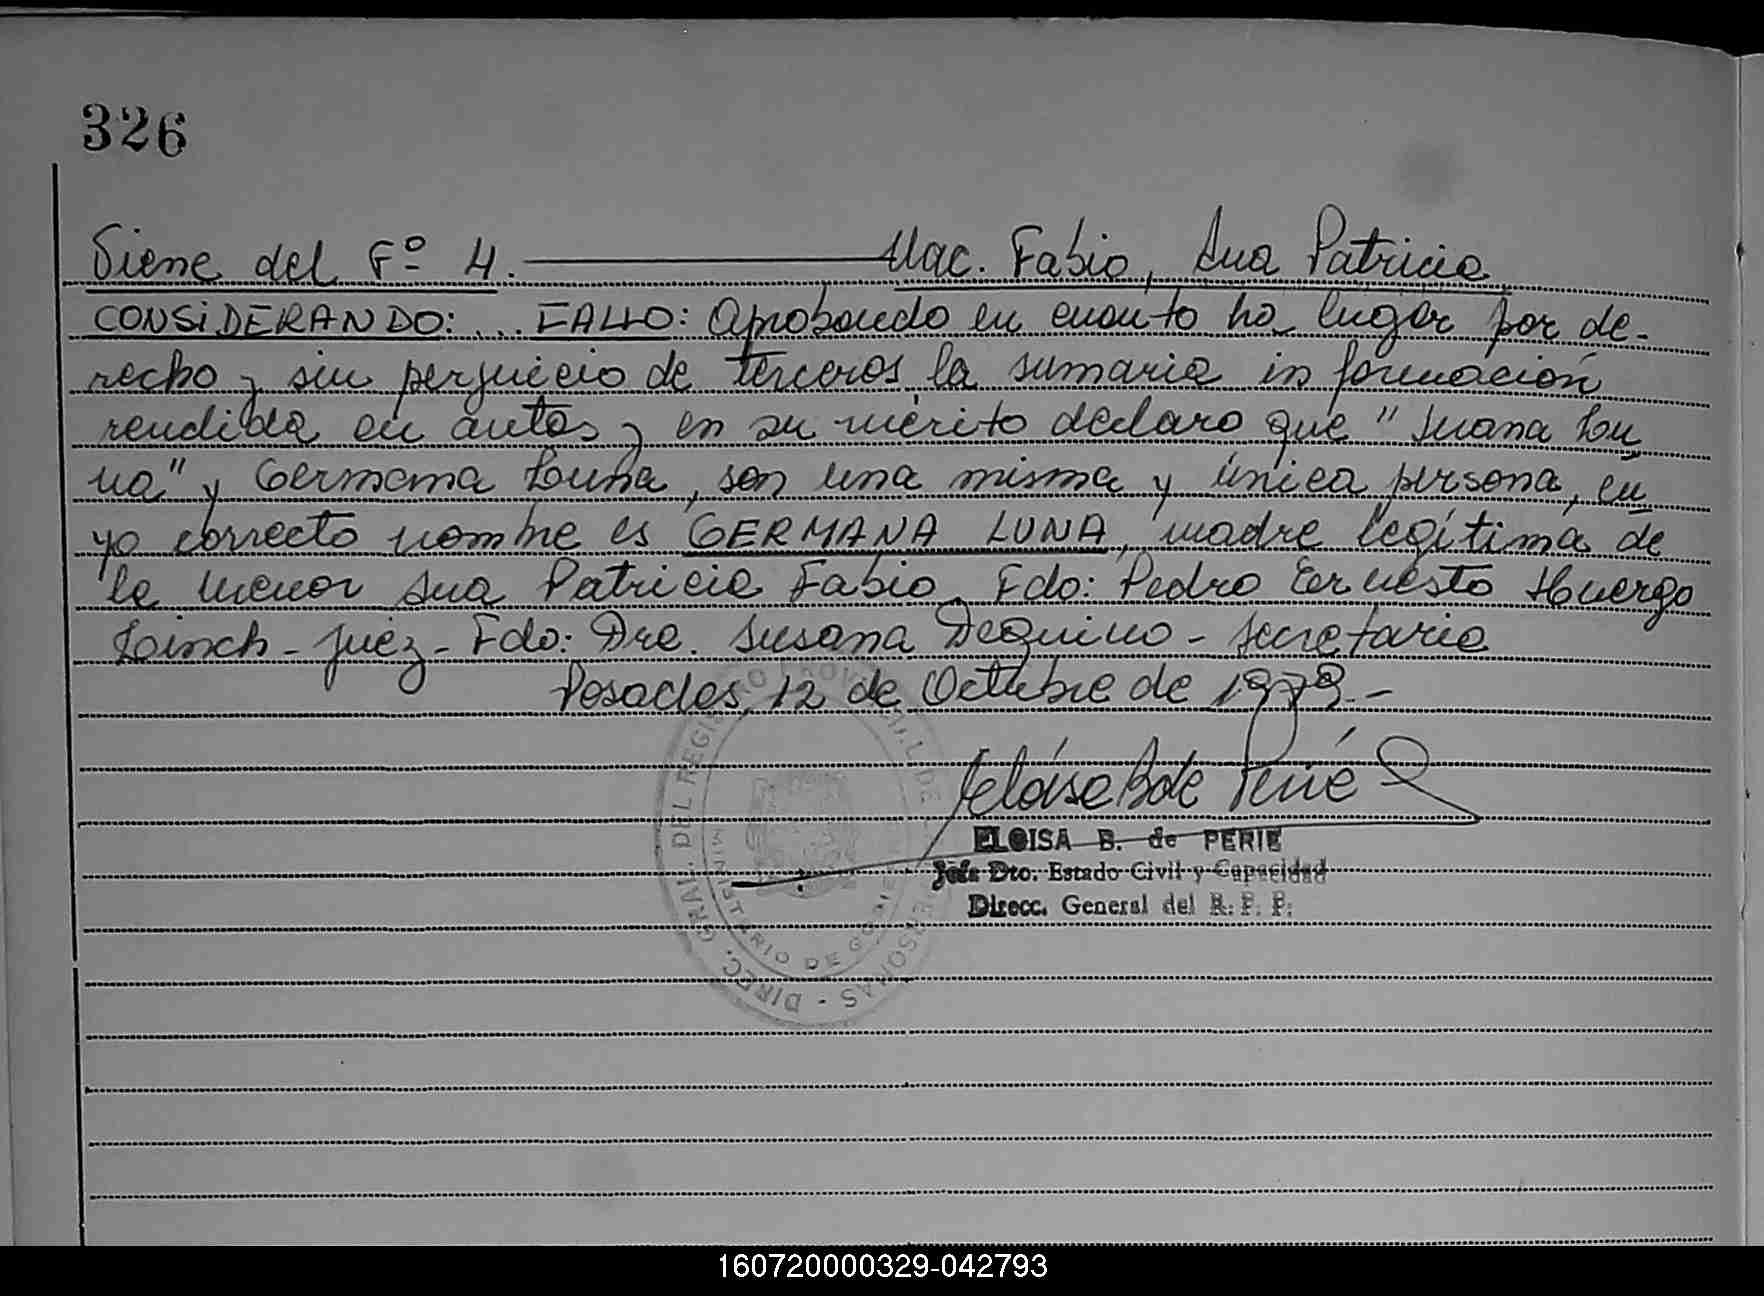 326
Viene del Fº 4. Nac. Fabio, Ana Patricia
CONSIDERANDO: ... FALLO: Aprobando en cuanto ha lugar por de-
recho y sin perjuicio de terceros la sumaria información
rendida en autos y en su mérito declaro que "Juana Lu
na" y Germana Luna, son una misma y única persona, cu
yo correcto nombre es GERMANA LUNA, madre legítima de
la menor Ana Patricia Fabio. Fdo: Pedro Ernesto Huergo
Linch - Juez - Fdo: Dra. Susana Dequino - Secretaria
Posadas, 12 de Octubre de 1979.-
Eloisa B de Perié
ELOISA B. de PERIE
Jefe Dto. Estado Civil y Capacidad
Direcc. General del R. P. P.
DIREC. GRAL. DEL REGISTRO PROVINCIAL DE PERSONAS
MINISTERIO DE GOBIE
160720000329-042793